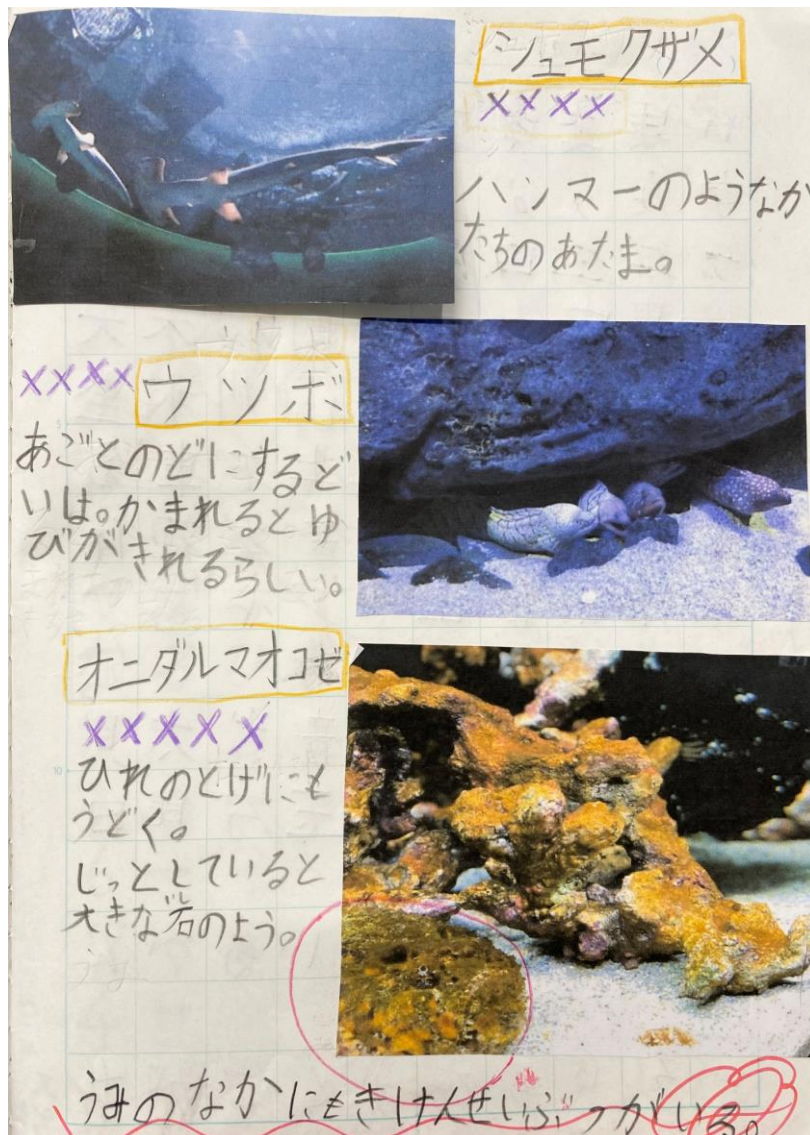 シュモクザメ
××××
ハンマーのようなか
たちのあたま。
××××
ウツボ
あごとのどにするど
いは。かまれるとゆ
びがきれるらしい。
オニダルマオコゼ
×××××
ひれのとげにも
うどく。
じっとしていると
大きな岩のよう。
うみのなかにもきけんせいぶつがいる。